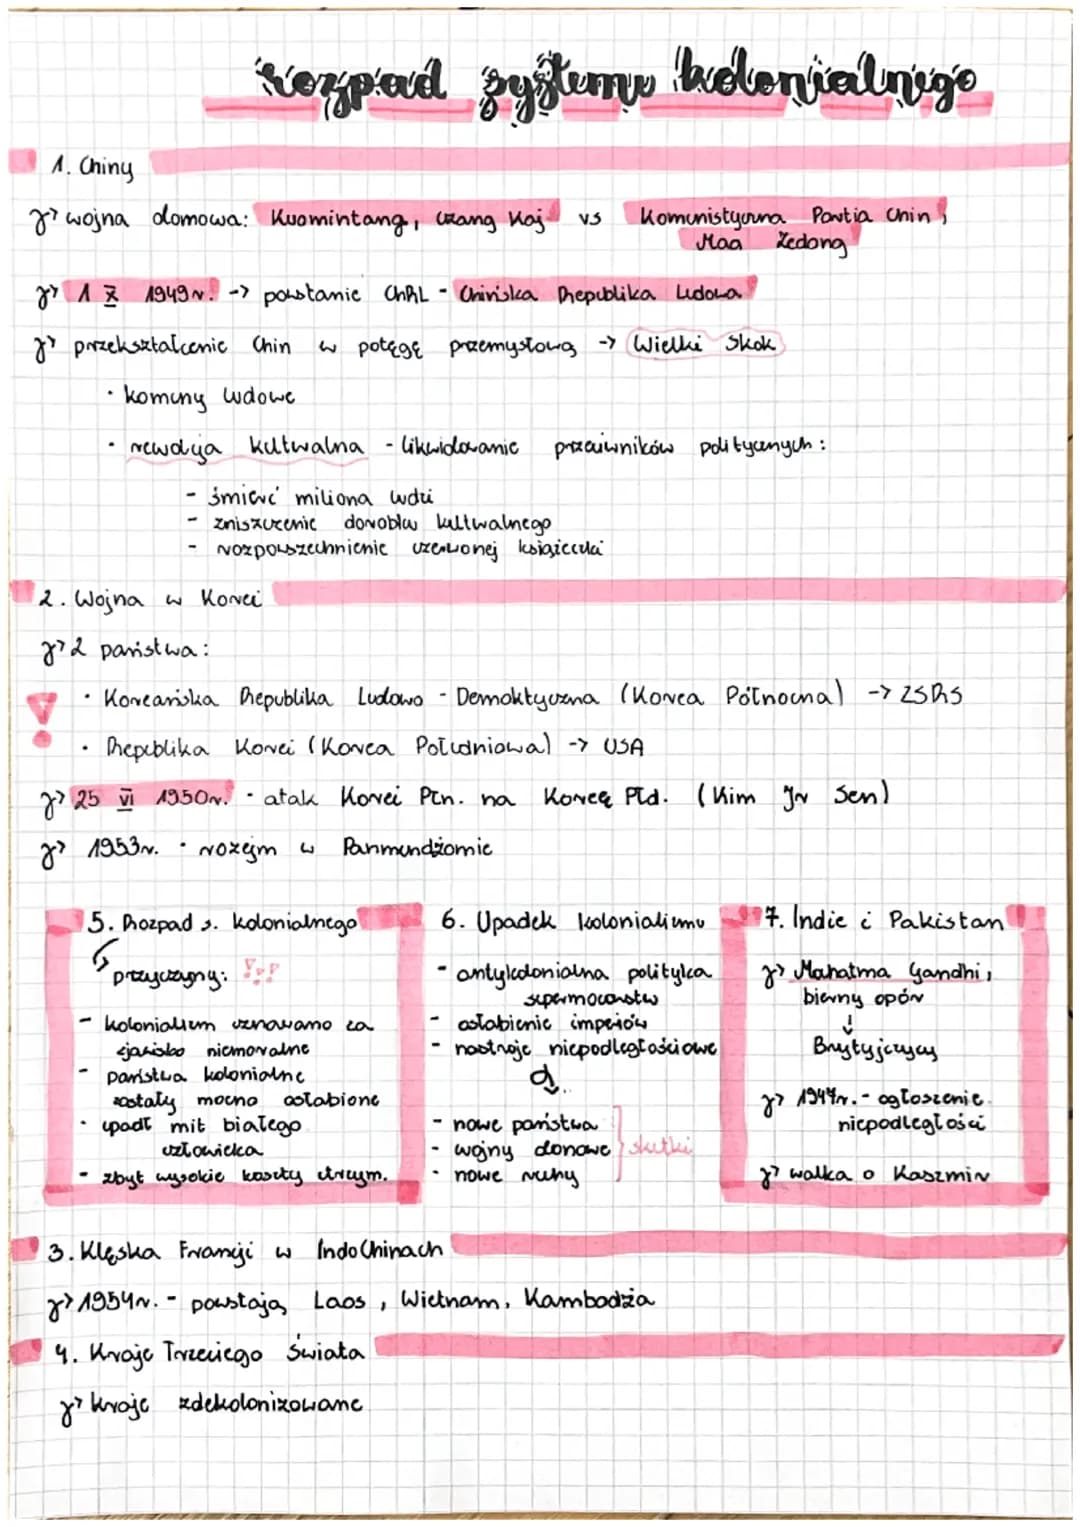 rozpad systemu kolonialnego
1. Chiny
wojna domowa: Kuomintang, Czang Kaj vs Komunistyczna Partia Chin,
Mao Zedong
1 X 1949r. -> powstanie ChRL - Chińska Republika Ludowa
przekształcenie Chin w potęgę przemysłową -> Wielki Skok
· komuny ludowe
· rewolucja kulturalna - likwidowanie przeciwników politycznych:
- śmierć miliona ludzi
- zniszczenie dorobku kulturalnego
- rozpowszechnienie czerwonej książeczki
2. Wojna w Korei
2 państwa:
· Koreańska Republika Ludowo - Demoktyczna (Korea Północna) -> ZSRS
· Republika Korei (Korea Południowa) -> USA
25 VI 1950r. - atak Korei Płn. na Koreę Płd. (Kim Ir Sen)
1953r. · rozejm w Panmundżomie
5. Rozpad s. kolonialnego
przyczyny:
- kolonializm uznawano za
zjawisko niemoralne
- państwa kolonialne
zostały mocno osłabione
· upadł mit białego
człowieka
- zbyt wysokie koszty utrzym.
6. Upadek kolonializmu
- antykolonialna polityka
supermocarstw
- osłabienie imperiów
- nastroje niepodległościowe
- nowe państwa
- wojny donowe } skutki
· nowe ruchy
7. Indie i Pakistan
Mahatma Gandhi,
bierny opór
↓
Brytyjczycy
1947r. - ogłoszenie
niepodległości
walka o Kaszmir
3. Klęska Francji w IndoChinach
1954r. - powstają Laos, Wietnam, Kambodża
4. Kraje Trzeciego Świata
kraje zdekolonizowane